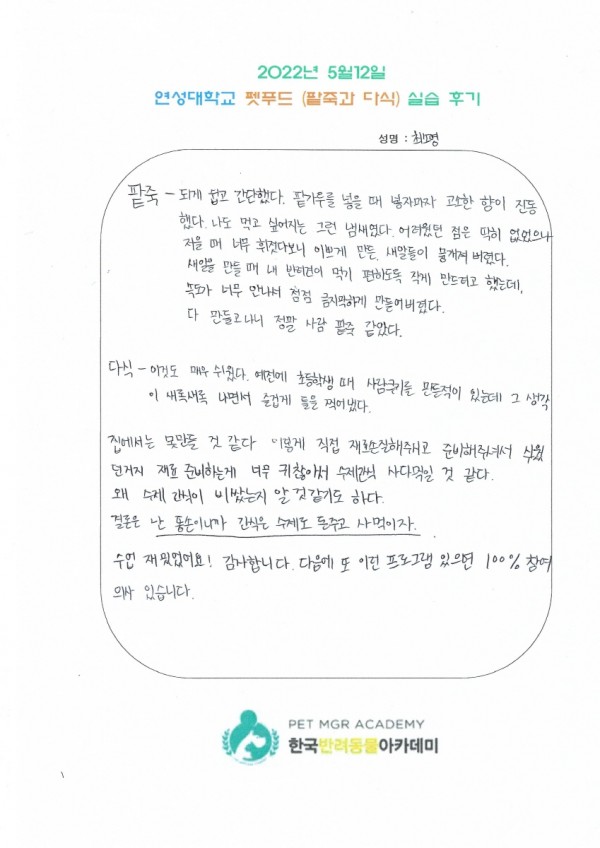 2022년 5월12일
연성대학교 펫푸드 (팥죽과 다식) 실습 후기
성명 :
팥죽 - 되게 쉽고 간단했다. 팥가루를 넣을 때 넣자마자 고소한 향이 진동
했다. 나도 먹고 싶어지는 그런 냄새였다. 어려웠던 점은 딱히 없었으나
저을 때 너무 휘젓다보니 이쁘게 만든, 새알들이 뭉개져 버렸다.
새알을 만들 때 내 반려견이 먹기 편하도록 작게 만드려고 했는데,
속도가 너무 안나서 점점 큼지막하게 만들어버렸다.
다 만들고나니 정말 사람 팥죽 같았다.
다식 - 이것도 매우 쉬웠다. 예전에 초등학생 때 사람쿠키를 만든적이 있는데 그 생각
이 새록새록 나면서 즐겁게 틀을 찍어냈다.
집에서는 못만들 것 같다 이렇게 직접 재료손질해주시고 준비해주셔서 쉬웠
던거지 재료 준비하는게 너무 귀찮아서 수제간식 사다먹일 것 같다.
왜 수제 간식이 비쌌는지 알 것같기도 하다.
결론은 난 똥손이니까 간식은 수제로 돈주고 사먹이자.
수업 재밌었어요! 감사합니다. 다음에 또 이런 프로그램 있으면 100% 참여
의사 있습니다.
PET MGR ACADEMY
한국반려동물아카데미